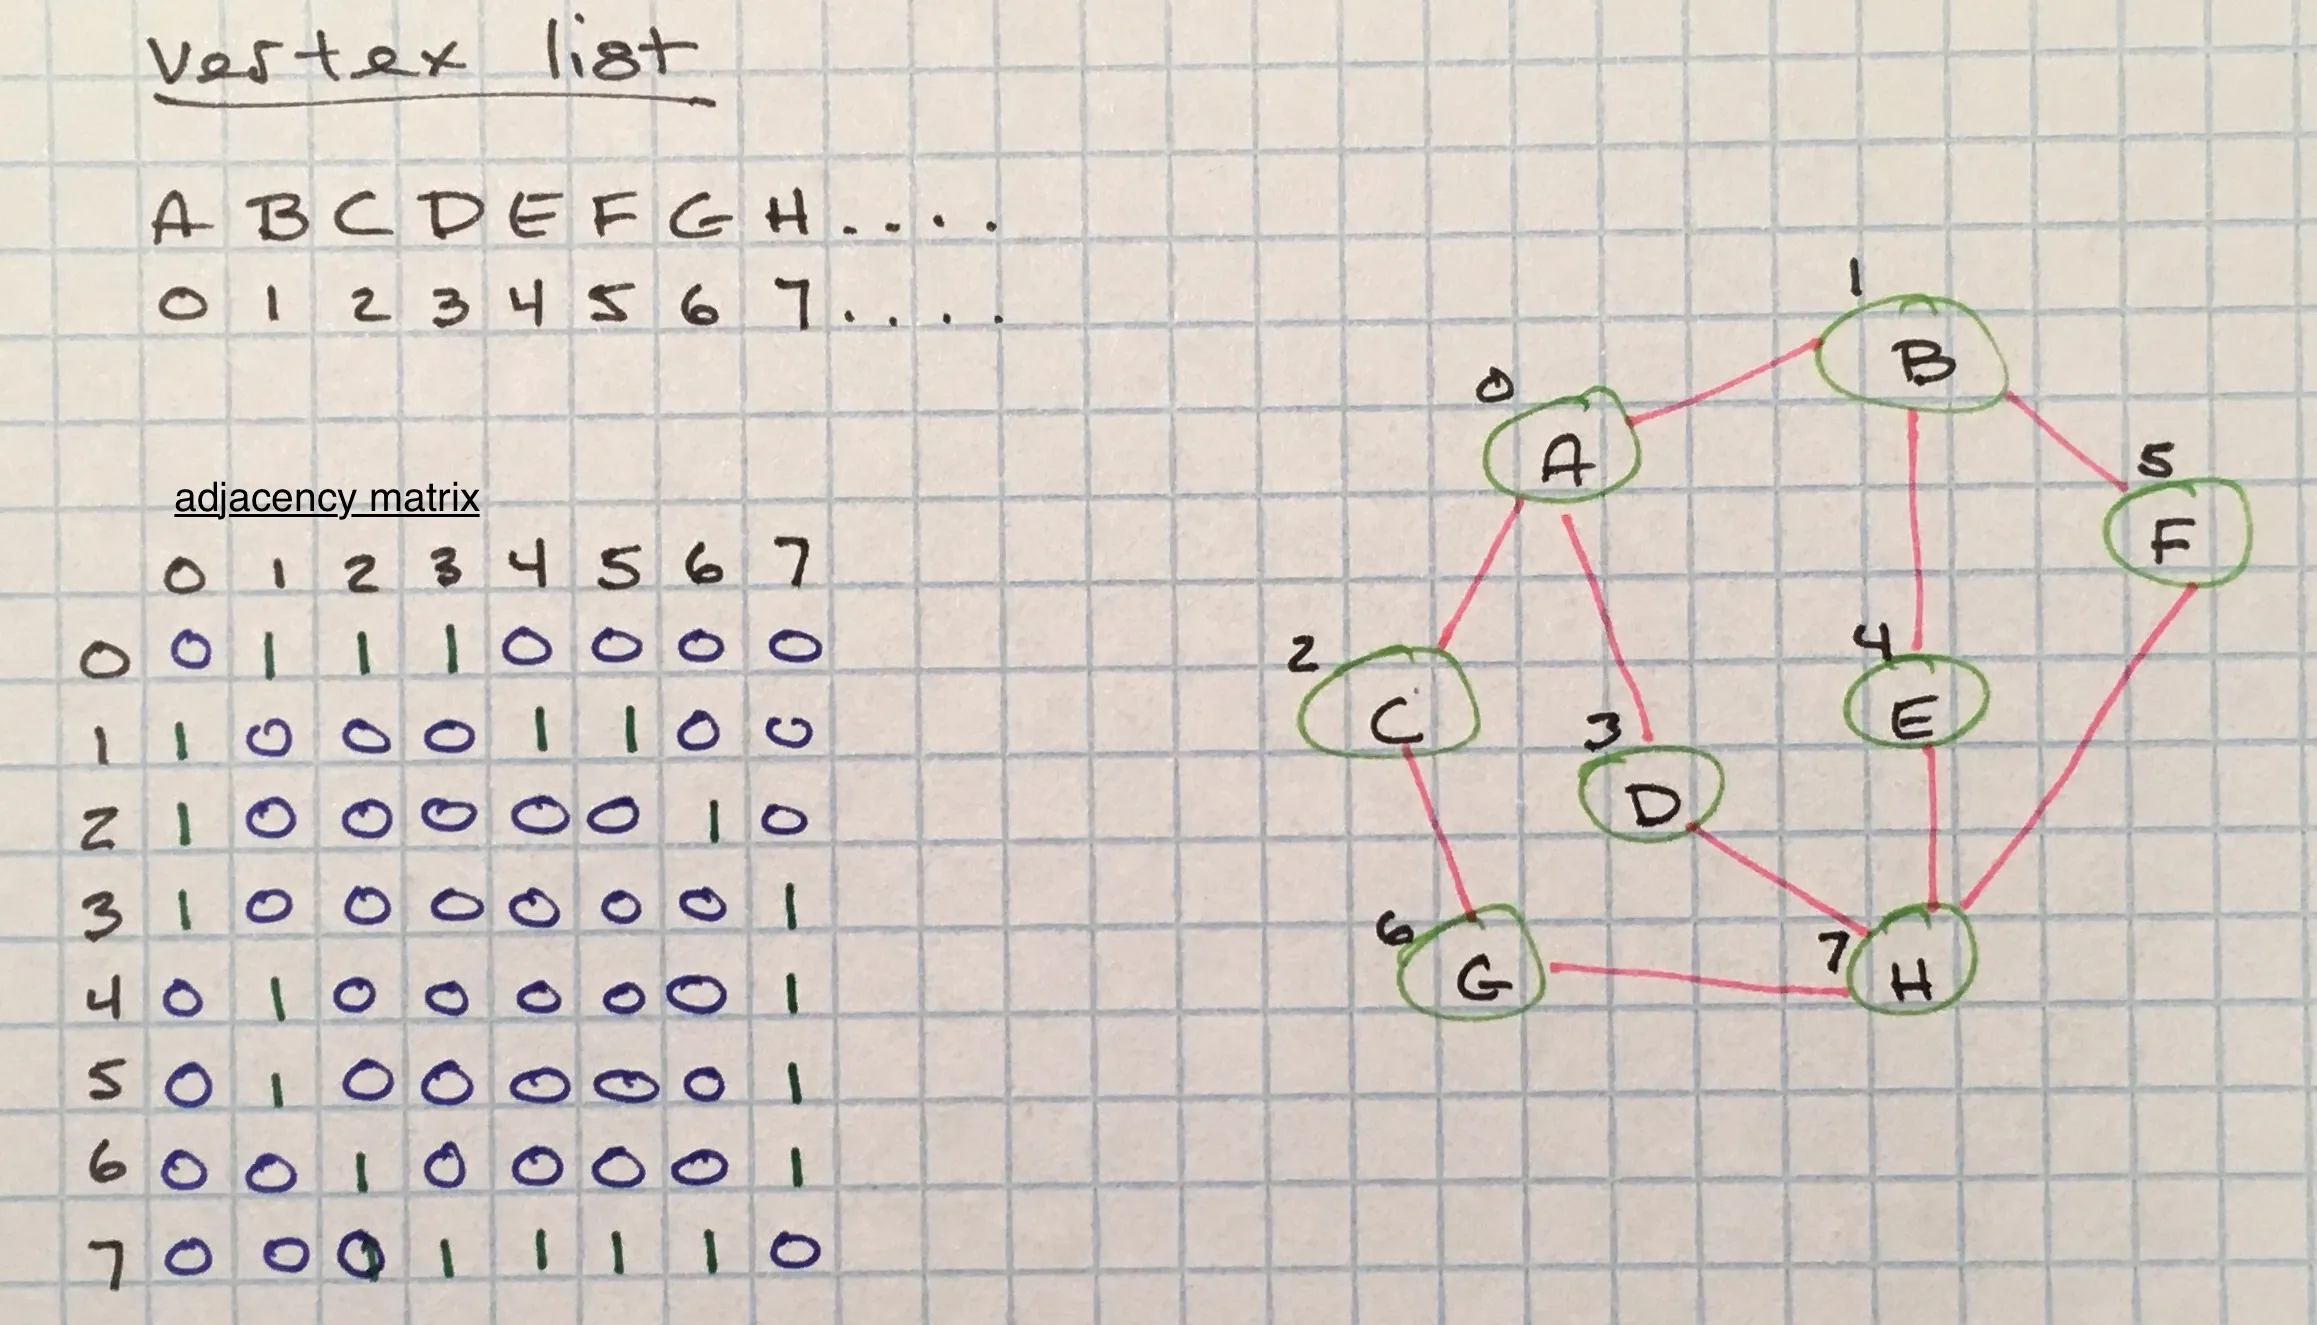 vertex list
A B C D E F G H ....
0 1 2 3 4 5 6 7 ....
adjacency matrix
0 1 2 3 4 5 6 7
0 0 1 1 1 0 0 0 0
1 1 0 0 0 1 1 0 0
2 1 0 0 0 0 0 1 0
3 1 0 0 0 0 0 0 1
4 0 1 0 0 0 0 0 1
5 0 1 0 0 0 0 0 1
6 0 0 1 0 0 0 0 1
7 0 0 0 1 1 1 1 0
1
B
0
A
5
F
2
C
4
E
3
D
6
G
7
H